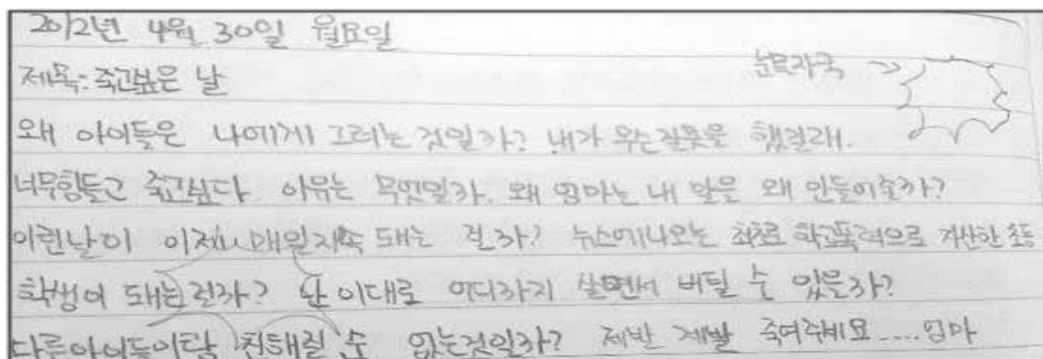 2012년 4월 30일 월요일
눈물자국 →
제목: 죽고싶은 날
왜 아이들은 나에게 그러는 것일까? 내가 무슨잘못을 했길래.
너무힘들고 죽고싶다. 이유는 무엇일까. 왜 엄마는 내 말은 왜 안들어줄까?
이런날이 이제 매일지속 돼는 걸까? 뉴스에나오는 최초로 학교폭력으로 자산한 초등
학생이 돼는걸까? 난 이대로 어디까지 살면서 버틸 수 있을까?
다른아이들이랑 친해질 수 없는것일까? 제발 제발 죽여주세요.....엄마